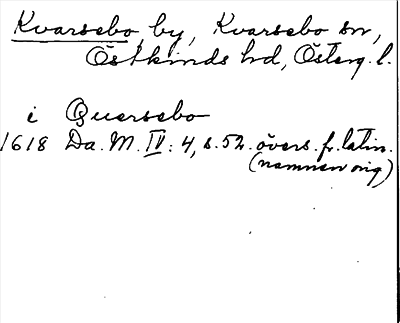 Kvarsebo by, Kvarsebo sn,
Östkinds hd, Österg. l.
i Quersebo
1618 Da. M. IV: 4, s. 52. övers. fr. latin.
(namnen orig)